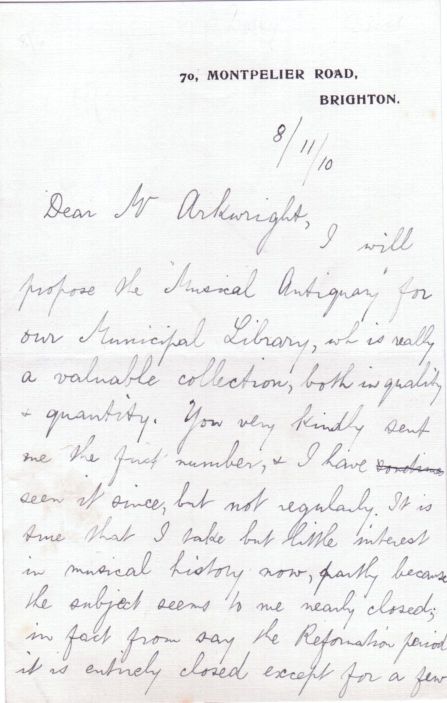 70, MONTPELIER ROAD,
BRIGHTON.
8/11/10
Dear Mr Arkwright,
I will
propose the "Musical Antiquary" for
our Municipal Library, wh is really
a valuable collection, both in quality
& quantity. You very kindly sent
me the first number, & I have sometimes
seen it since, but not regularly. It is
true that I take but little interest
in musical history now, partly because
the subject seems to me nearly closed;
in fact from say the Reformation period
it is entirely closed except for a few